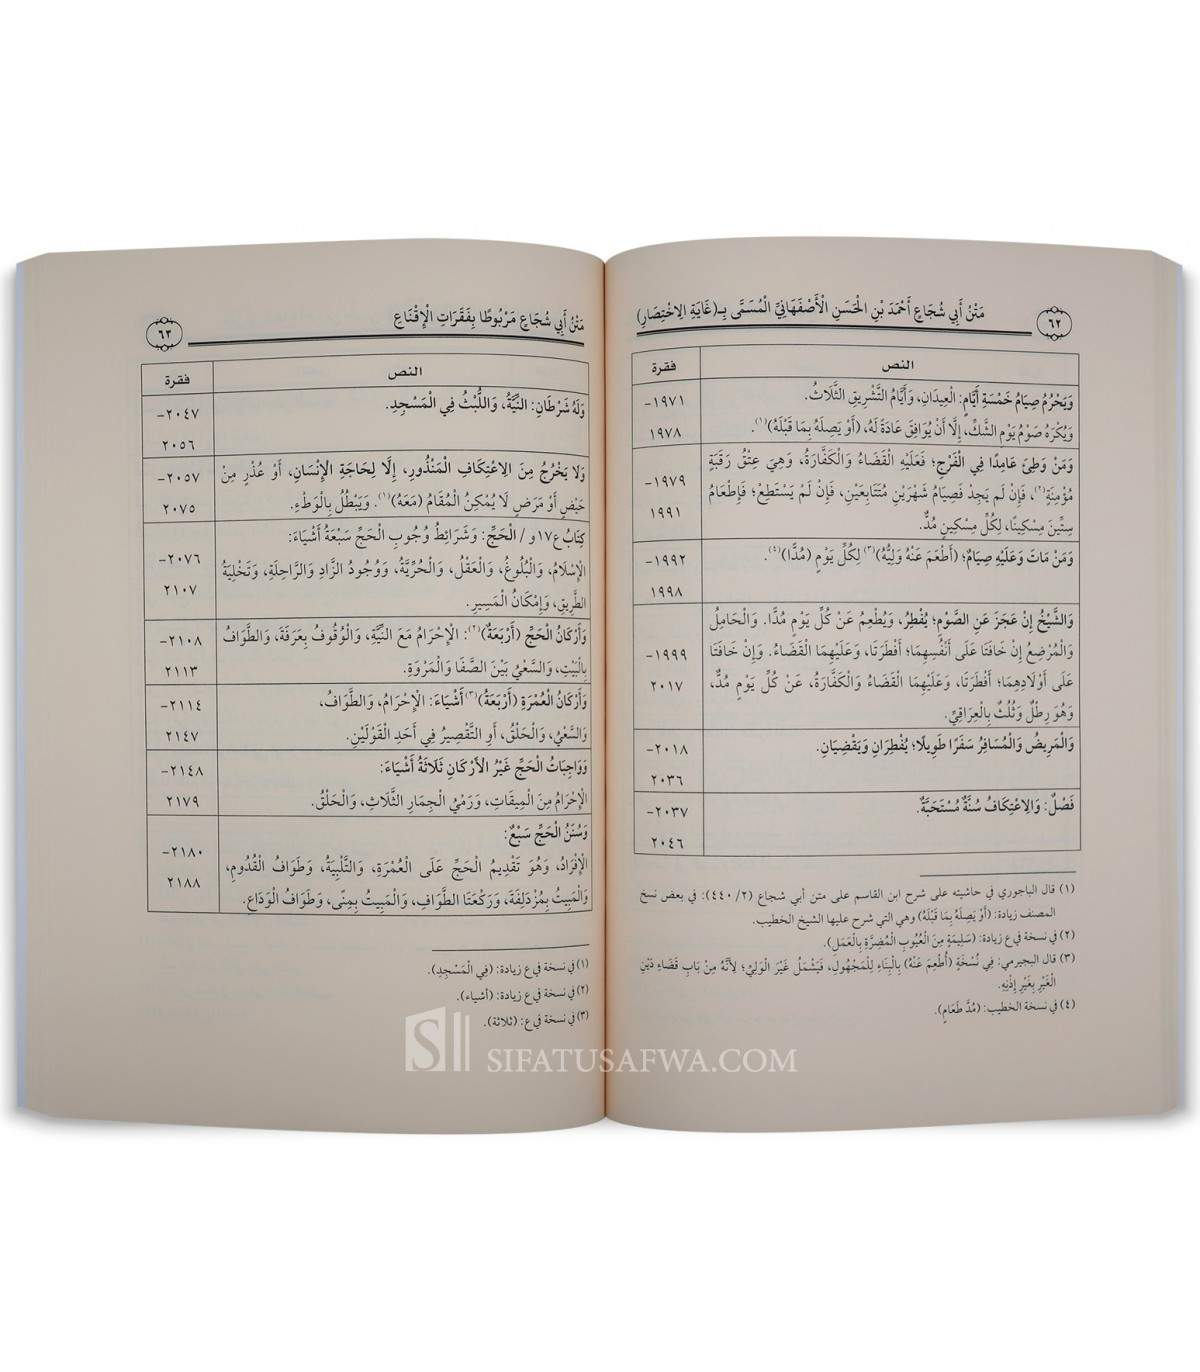 ٦٢
مَتْنُ أَبِي شُجَاعٍ أَحْمَدَ بْنِ الْحَسَنِ الْأَصْفَهَانِيِّ الْمُسَمَّى بِـ(غَايَةِ الِاخْتِصَارِ)
النص فقرة
وَيَحْرُمُ صِيَامُ خَمْسَةِ أَيَّامٍ: الْعِيدَانِ، وَأَيَّامُ التَّشْرِيقِ الثَّلَاثُ. ١٩٧١-
وَيُكْرَهُ صَوْمُ يَوْمِ الشَّكِّ، إِلَّا أَنْ يُوَافِقَ عَادَةً لَهُ، (أَوْ يَصِلَهُ بِمَا قَبْلَهُ)(١). ١٩٧٨
وَمَنْ وَطِئَ عَامِدًا فِي الْفَرْجِ؛ فَعَلَيْهِ الْقَضَاءُ وَالْكَفَّارَةُ، وَهِيَ عِتْقُ رَقَبَةٍ ١٩٧٩-
مُؤْمِنَةٍ(٢)، فَإِنْ لَمْ يَجِدْ فَصِيَامُ شَهْرَيْنِ مُتَتَابِعَيْنِ، فَإِنْ لَمْ يَسْتَطِعْ؛ فَإِطْعَامُ ١٩٩١
سِتِّينَ مِسْكِينًا، لِكُلِّ مِسْكِينٍ مُدٌّ.
وَمَنْ مَاتَ وَعَلَيْهِ صِيَامٌ؛ (أَطْعَمَ عَنْهُ وَلِيُّهُ)(٣) لِكُلِّ يَوْمٍ (مُدًّا)(٤). ١٩٩٢-
١٩٩٨
وَالشَّيْخُ إِنْ عَجَزَ عَنِ الصَّوْمِ؛ يُفْطِرُ، وَيُطْعِمُ عَنْ كُلِّ يَوْمٍ مُدًّا. وَالْحَامِلُ
وَالْمُرْضِعُ إِنْ خَافَتَا عَلَى أَنْفُسِهِمَا؛ أَفْطَرَتَا، وَعَلَيْهِمَا الْقَضَاءُ. وَإِنْ خَافَتَا ١٩٩٩-
عَلَى أَوْلَادِهِمَا؛ أَفْطَرَتَا، وَعَلَيْهِمَا الْقَضَاءُ وَالْكَفَّارَةُ، عَنْ كُلِّ يَوْمٍ مُدٌّ، ٢٠١٧
وَهُوَ رِطْلٌ وَثُلُثٌ بِالْعِرَاقِيِّ.
وَالْمَرِيضُ وَالْمُسَافِرُ سَفَرًا طَوِيلًا؛ يُفْطِرَانِ وَيَقْضِيَانِ. ٢٠١٨-
٢٠٣٦
فَصْلٌ: وَالِاعْتِكَافُ سُنَّةٌ مُسْتَحَبَّةٌ. ٢٠٣٧-
٢٠٤٦
(١) قال الباجوري في حاشيته على شرح ابن القاسم على متن أبي شجاع (٢/ ٤٤٠): في بعض نسخ
المصنف زيادة: (أَوْ يَصِلَهُ بِمَا قَبْلَهُ) وهي التي شرح عليها الشيخ الخطيب.
(٢) في نسخة في ع زيادة: (سَلِيمَةٍ مِنَ الْعُيُوبِ الْمُضِرَّةِ بِالْعَمَلِ).
(٣) قال البجيرمي: فِي نُسْخَةٍ (أُطْعِمَ عَنْهُ) بِالْبِنَاءِ لِلْمَجْهُولِ، فَيَشْمَلُ غَيْرَ الْوَلِيِّ؛ لِأَنَّهُ مِنْ بَابِ قَضَاءِ دَيْنِ
الْغَيْرِ بِغَيْرِ إِذْنِهِ.
(٤) في نسخة الخطيب: (مُدَّ طَعَامٍ).
مَتْنُ أَبِي شُجَاعٍ مَرْبُوطًا بِفَقَرَاتِ الْإِقْنَاعِ
٦٣
النص فقرة
وَلَهُ شَرْطَانِ: النِّيَّةُ، وَاللُّبْثُ فِي الْمَسْجِدِ. ٢٠٤٧-
٢٠٥٦
وَلَا يَخْرُجُ مِنَ الِاعْتِكَافِ الْمَنْذُورِ، إِلَّا لِحَاجَةِ الْإِنْسَانِ، أَوْ عُذْرٍ مِنْ ٢٠٥٧-
حَيْضٍ أَوْ مَرَضٍ لَا يُمْكِنُ الْمُقَامُ (مَعَهُ)(١). وَيَبْطُلُ بِالْوَطْءِ. ٢٠٧٥
كِتَابُ ع١٧و / الْحَجِّ: وَشَرَائِطُ وُجُوبِ الْحَجِّ سَبْعَةُ أَشْيَاءَ:
الْإِسْلَامُ، وَالْبُلُوغُ، وَالْعَقْلُ، وَالْحُرِّيَّةُ، وَوُجُودُ الزَّادِ وَالرَّاحِلَةِ، وَتَخْلِيَةُ ٢٠٧٦-
الطَّرِيقِ، وَإِمْكَانُ الْمَسِيرِ. ٢١٠٧
وَأَرْكَانُ الْحَجِّ (أَرْبَعَةٌ)(٢): الْإِحْرَامُ مَعَ النِّيَّةِ، وَالْوُقُوفُ بِعَرَفَةَ، وَالطَّوَافُ ٢١٠٨-
بِالْبَيْتِ، وَالسَّعْيُ بَيْنَ الصَّفَا وَالْمَرْوَةِ. ٢١١٣
وَأَرْكَانُ الْعُمْرَةِ (أَرْبَعَةُ)(٣) أَشْيَاءَ: الْإِحْرَامُ، وَالطَّوَافُ، ٢١١٤-
وَالسَّعْيُ، وَالْحَلْقُ، أَوِ التَّقْصِيرُ فِي أَحَدِ الْقَوْلَيْنِ. ٢١٤٧
وَوَاجِبَاتُ الْحَجِّ غَيْرُ الْأَرْكَانِ ثَلَاثَةُ أَشْيَاءَ: ٢١٤٨-
الْإِحْرَامُ مِنَ الْمِيقَاتِ، وَرَمْيُ الْجِمَارِ الثَّلَاثِ، وَالْحَلْقُ. ٢١٧٩
وَسُنَنُ الْحَجِّ سَبْعٌ:
الْإِفْرَادُ، وَهُوَ تَقْدِيمُ الْحَجِّ عَلَى الْعُمْرَةِ، وَالتَّلْبِيَةُ، وَطَوَافُ الْقُدُومِ، ٢١٨٠-
وَالْمَبِيتُ بِمُزْدَلِفَةَ، وَرَكْعَتَا الطَّوَافِ، وَالْمَبِيتُ بِمِنًى، وَطَوَافُ الْوَدَاعِ. ٢١٨٨
(١) في نسخة في ع زيادة: (فِي الْمَسْجِدِ).
(٢) في نسخة في ع زيادة: (أشياء).
(٣) في نسخة في ع: (ثلاثة).
SIFATUSAFWA.COM